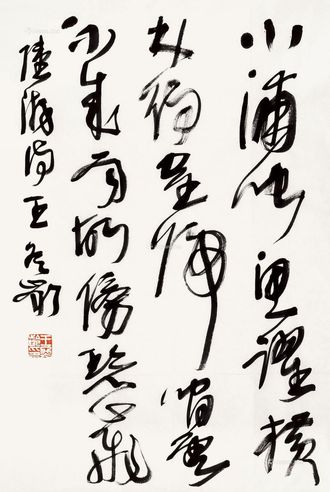 小浦聞魚躍橫
林待鶴歸閒雲
不成雨故傍碧山飛
陸游詩王冬齡